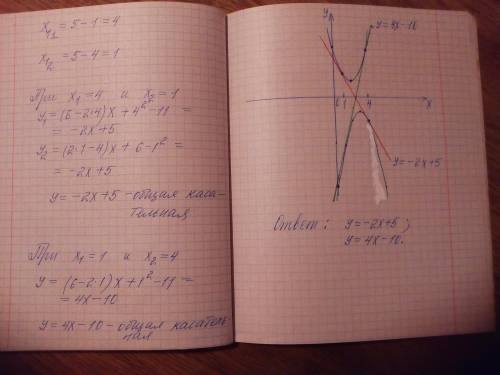 x₁₁ = 5-1 = 4
x₁₂ = 5-4 = 1
При x₁=4 и x₂=1
y₁=(6-2·4)x + 4²-11 =
= -2x+5
y₂=(2·1-4)x + 6-1² =
= -2x+5
y = -2x+5 - общая каса-
тельная
При x₁=1 и x₂=4
y = (6-2·1)x + 1²-11 =
= 4x-10
y = 4x-10 - общая касатель-
ная
y
y=4x-10
0 1 4
x
y=-2x+5
Ответ: y=-2x+5;
y=4x-10.